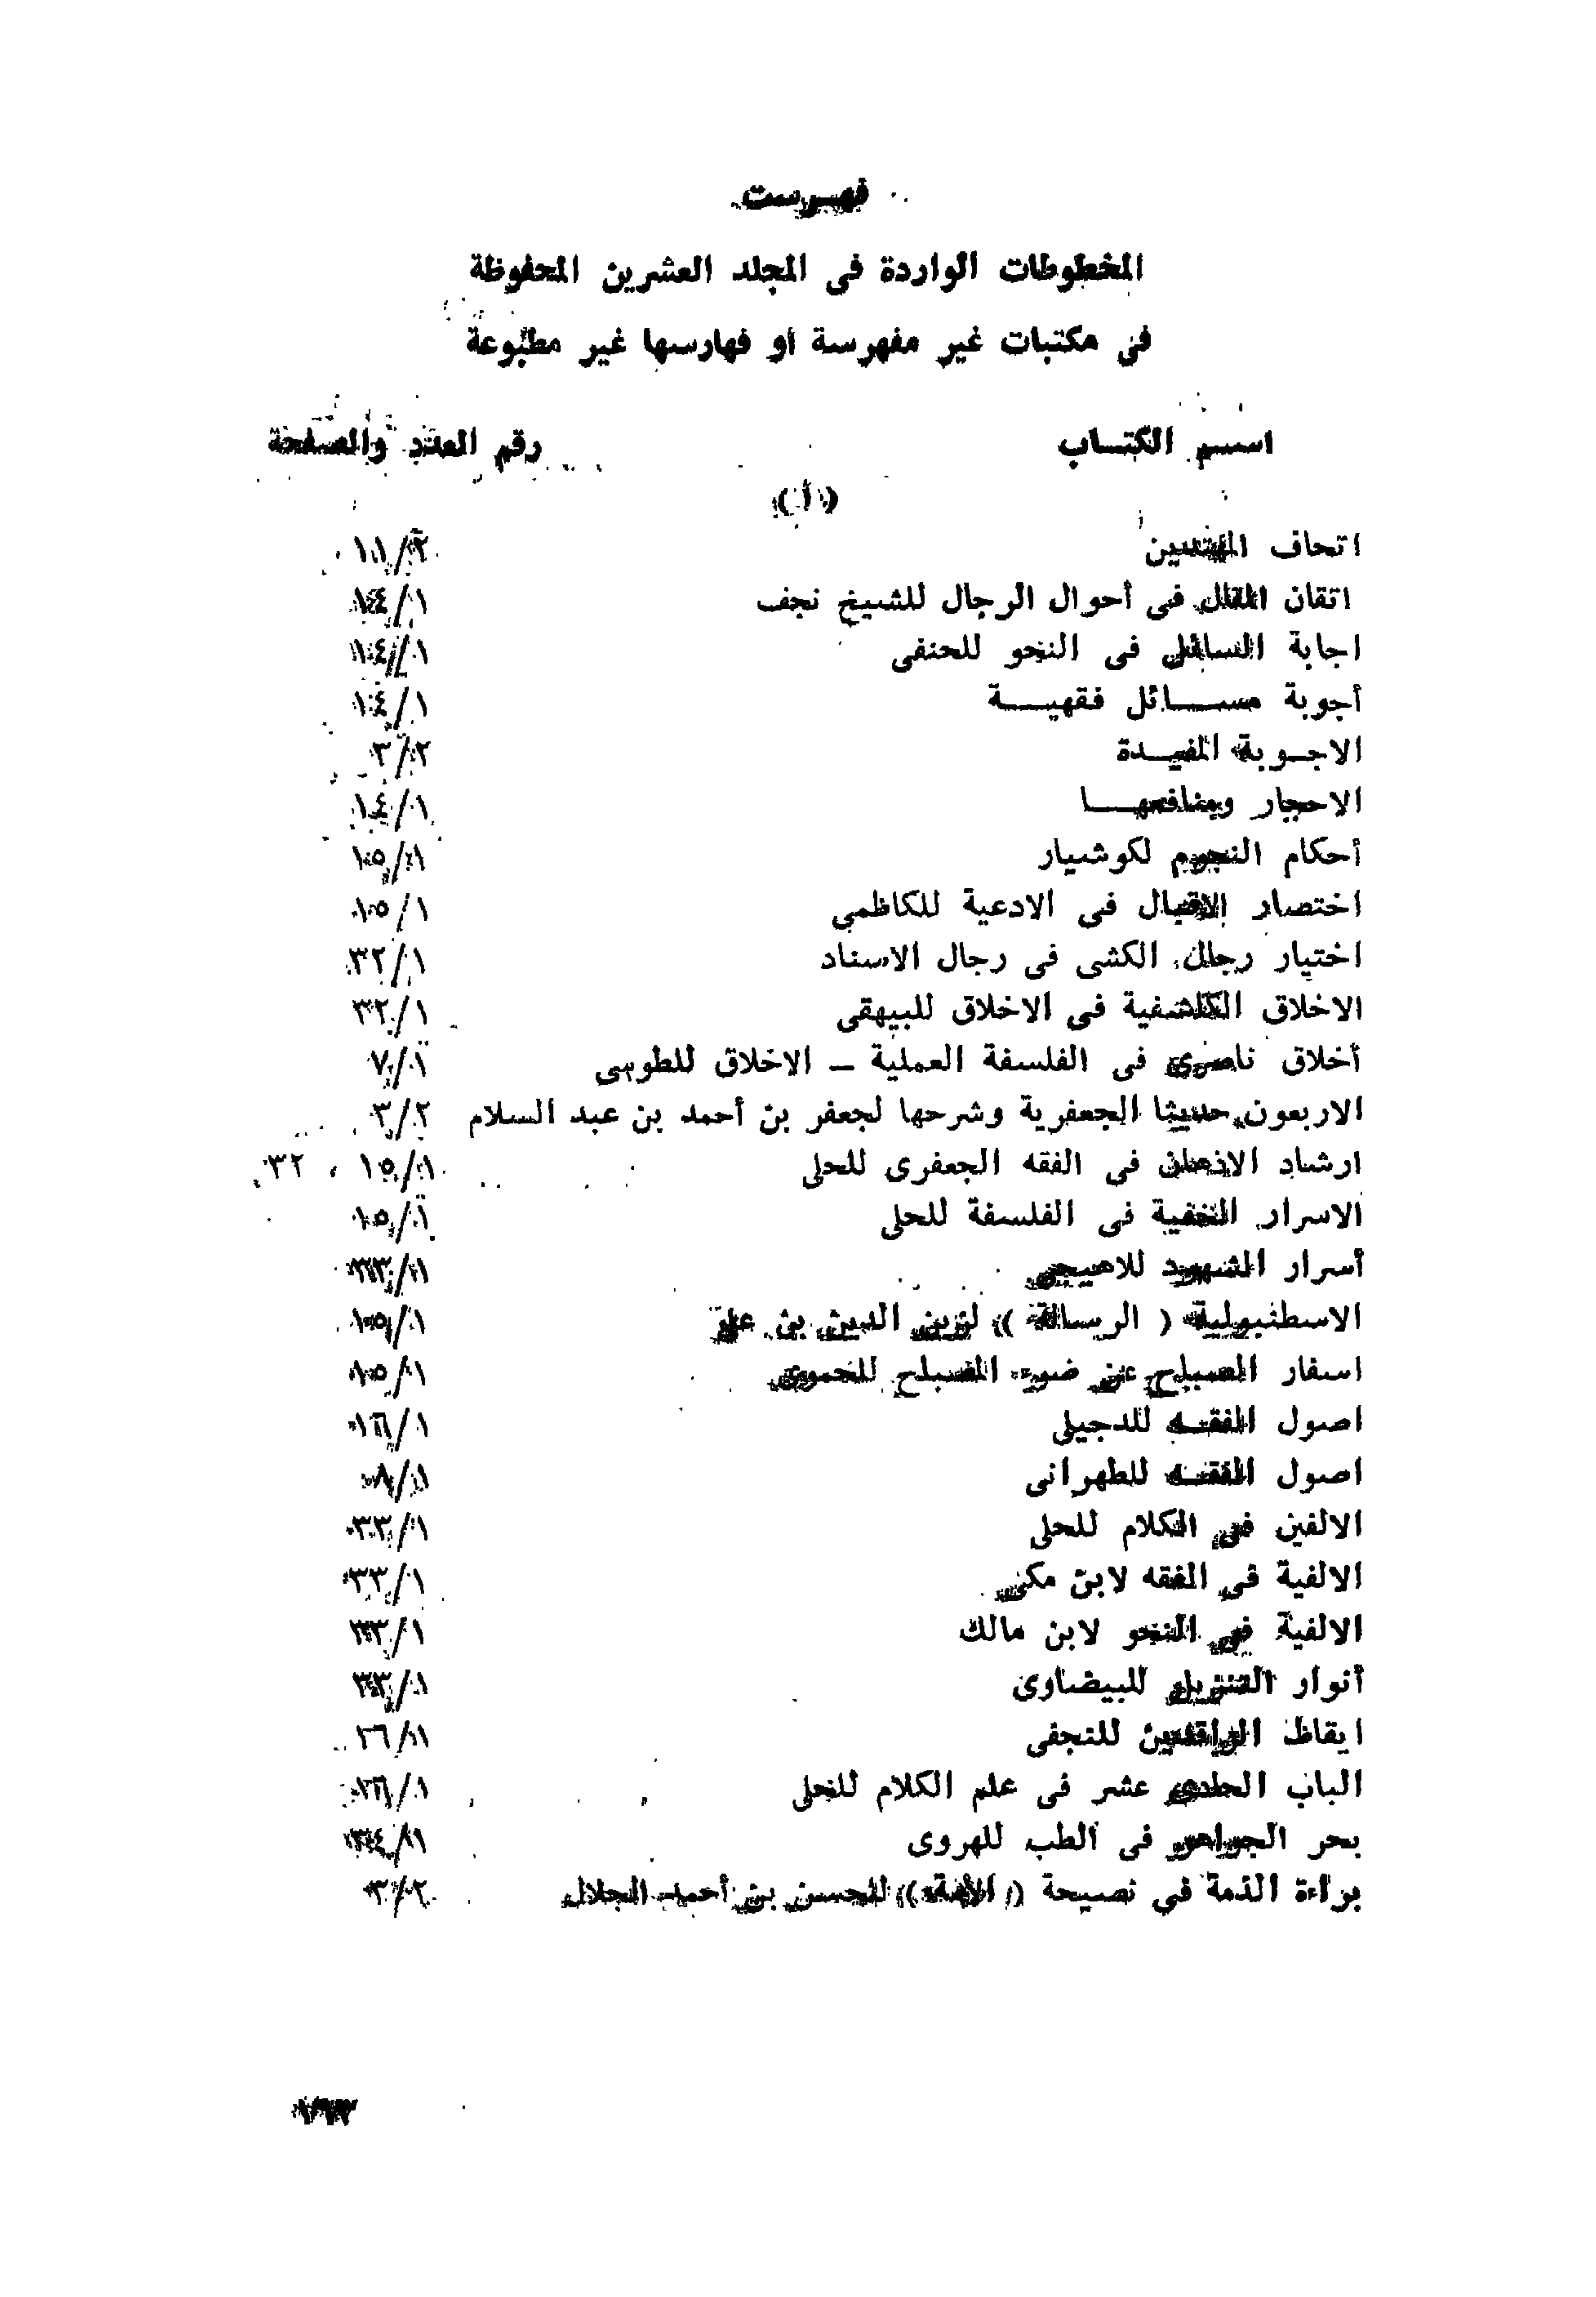 فهـرست
المخطوطات الواردة فى المجلد العشرين المحفوظة
فى مكتبات غير مفهرسة او فهارسها غير مطبوعة
اسـم الكتـاب رقم العدد والصفحة
( أ )
اتحاف المهتدين ٢/١١
اتقان المقال فى أحوال الرجال للشيخ نجف ١/١٤
اجابة السائل فى النحو للحنفى ١/١٤
أجوبة مسـائل فقهيـة ١/١٤
الاجـوبة المفيـدة ٢/٣
الاحجار ومنافعهـا ١/١٤
أحكام النجوم لكوشيار ١/١٥
اختصار الاقبال فى الادعية للكاظمى ١/١٥
اختيار رجال الكشى فى رجال الاسناد ١/٣٢
الاخلاق الكاشفية فى الاخلاق للبيهقى ١/٣٢
أخلاق ناصرى فى الفلسفة العملية – الاخلاق للطوسى ١/٧
الاربعون حديثا الجعفرية وشرحها لجعفر بن أحمد بن عبد السلام ٢/٣
ارشاد الاذهان فى الفقه الجعفرى للحلى ١/١٥ ، ٣٢
الاسرار الخفية فى الفلسفة للحلى ١/١٥
أسرار الشهود للاهيجى ١/٣٣
الاسطنبولية ( الرسالة ) لزين الدين بن على ١/١٥
اسفار الصباح عن ضوء المصباح للحموى ١/١٥
اصول الفقـه للدجيلى ١/١٦
اصول الفقـه للطهرانى ١/٨
الالفين فى الكلام للحلى ١/٣٣
الالفية فى الفقه لابن مكى ١/٣٣
الالفية فى النحو لابن مالك ١/٣٣
أنوار التنزيل للبيضاوى ١/٣٣
ايقاظ الراقدين للنجفى ١/١٦
الباب الحادى عشر فى علم الكلام للحلى ١/١٦
بحر الجواهر فى الطب للهروى ١/٣٤
براءة الذمة فى نصيحة ( الأئمة ) للحسن بن أحمد الجلال ٢/٣